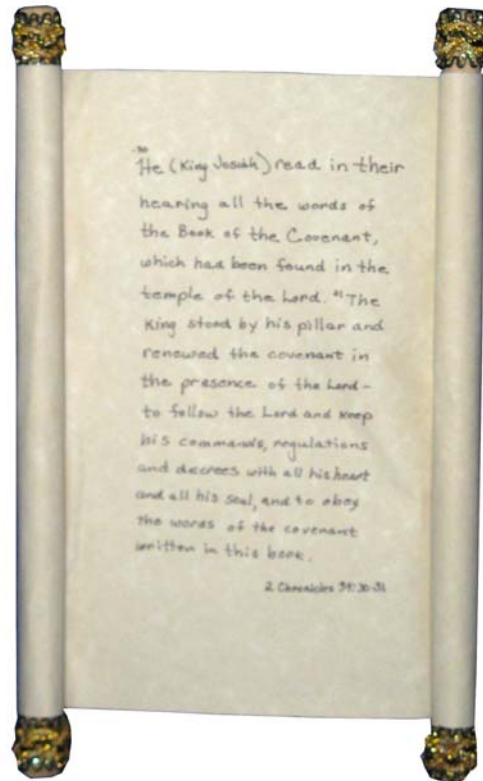 30
He (King Josiah) read in their
hearing all the words of
the Book of the Covenant,
which had been found in the
temple of the Lord. 31 The
King stood by his pillar and
renewed the covenant in
the presence of the Lord –
to follow the Lord and keep
his commands, regulations
and decrees with all his heart
and all his soul, and to obey
the words of the covenant
written in this book.
2 Chronicles 34:30-31